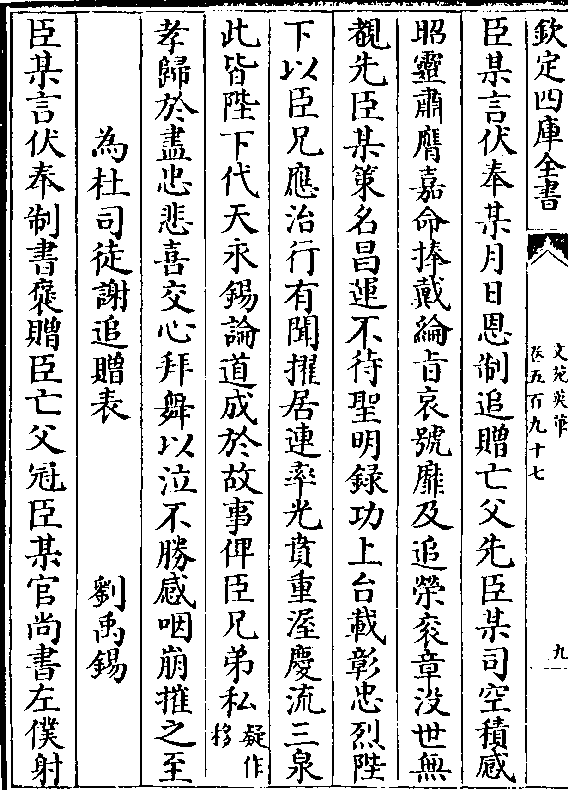 欽定四庫全書
文苑英華
卷五百九十七
九
臣某言伏奉某月日恩制追贈亡父先臣某司空積感
昭靈肅膺嘉命捧戴綸旨哀號靡及追榮衮章没世無
覩先臣某策名昌運不待聖明録功上台載彰忠烈陛
下以臣兄應治行有聞擢居連率光賁重渥慶流三泉
此皆陛下代天永錫論道成於故事俾臣兄弟私疑作移
孝歸於盡忠悲喜交心拜舞以泣不勝感咽崩摧之至
為杜司徒謝追贈表 劉禹錫
臣某言伏奉制書褒贈臣亡父冠臣某官尚書左僕射